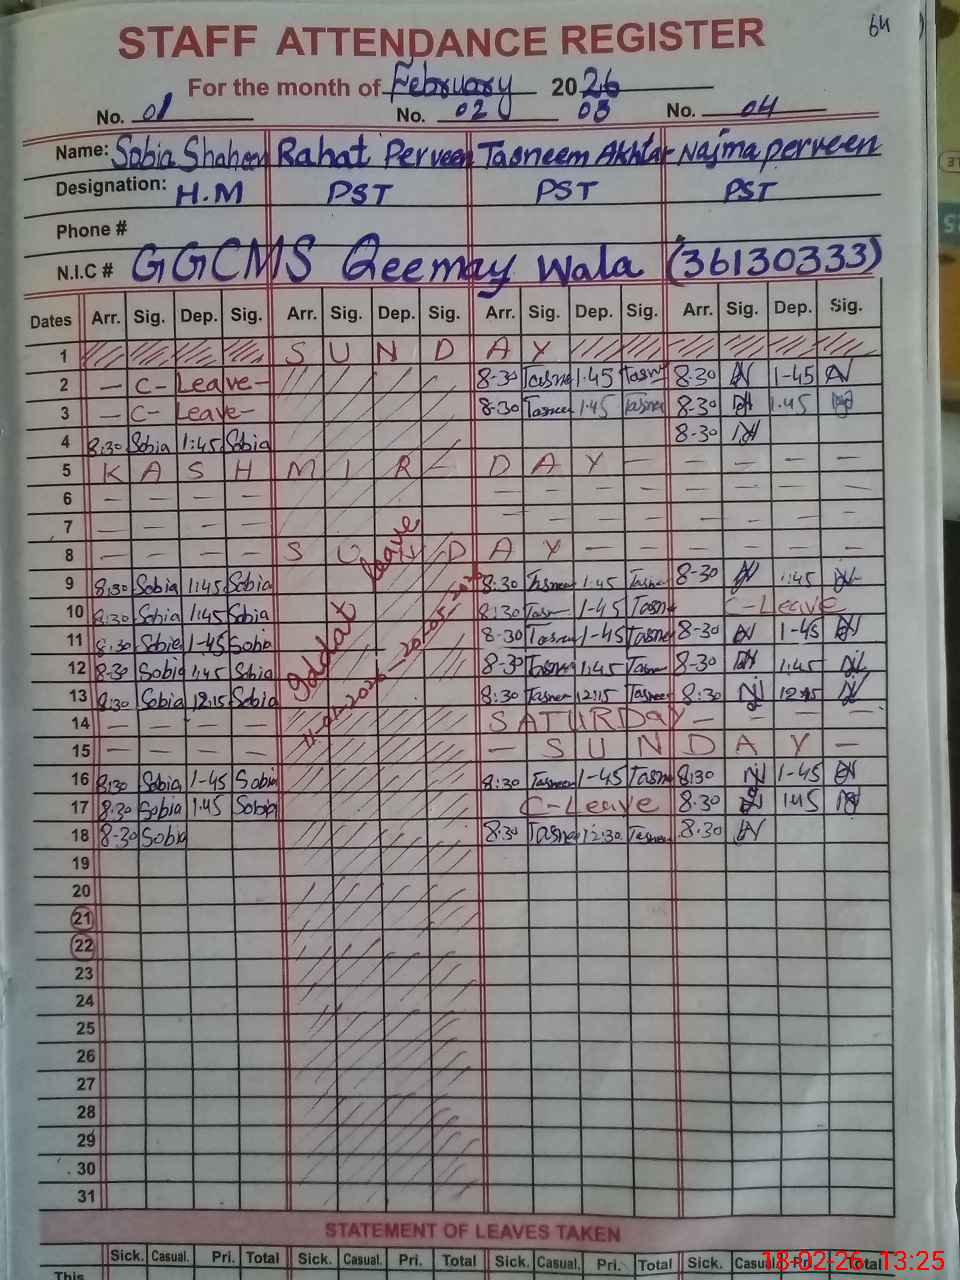 64
STAFF ATTENDANCE REGISTER
For the month of February 2026
No. 01 No. 02 03 No. 04
Name: Sobia Shaheen Rahat Perveen Tasneem Akhtar Najma perveen
Designation: H.M PST PST PST
Phone #
N.I.C # GGCMS Qeemay Wala (36130333)
Dates Arr. Sig. Dep. Sig. Arr. Sig. Dep. Sig. Arr. Sig. Dep. Sig. Arr. Sig. Dep. Sig.
1 S U N D A Y
2 — C- Leave- 8-30 Tasne 1.45 Tasn 8-30 1-45
3 — C- Leave- 8-30 Tasnee 1.45 Tasnee 8-30 1.45
4 8:30 Sobia 1:45 Sobia 8-30
5 K A S H M I R - D A Y - - - - -
6 - - - - - - - - - - - -
7 - - - - - - - - - - - -
8 - - - - S U N D A Y - - - - - -
9 8:30 Sobia 1:45 Sobia 8:30 Tasnee 1:45 Tasnee 8-30 1:45
10 8:30 Sobia 1:45 Sobia 8:30 Tasn 1-45 Tasn C-Leave
11 8:30 Sobia 1-45 Sobia 8-30 Tasnee 1-45 Tasnee 8-30 1-45
12 8-30 Sobia 1:45 Sobia 8-30 Tasnee 1:45 Tasnee 8-30 1:45
13 8:30 Sobia 12:15 Sobia 8:30 Tasnee 12:15 Tasnee 8:30 12:15
14 - - - - SATURDaY - - - -
15 - - - - - S U N D A Y -
16 8:30 Sobia 1-45 Sobia 8:30 Tasneem 1-45 Tasn 8:30 1-45
17 8:30 Sobia 1.45 Sobia C-Leave 8-30 1.45
18 8-30 Sobia 8:30 Tasnee 12:30 Tasnee 8-30
Iddat leave
19
20
21
22
23
24
25
26
27
28
29
30
31
STATEMENT OF LEAVES TAKEN
Sick. Casual. Pri. Total Sick. Casual. Pri. Total Sick. Casual. Pri. Total Sick. Casual Pri. Total
This
18-02-26 13:25